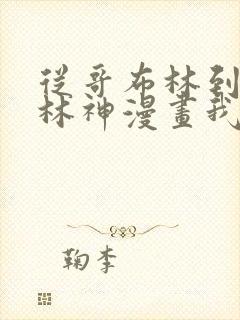 從哥布林到
林神漫畫我
鞠李